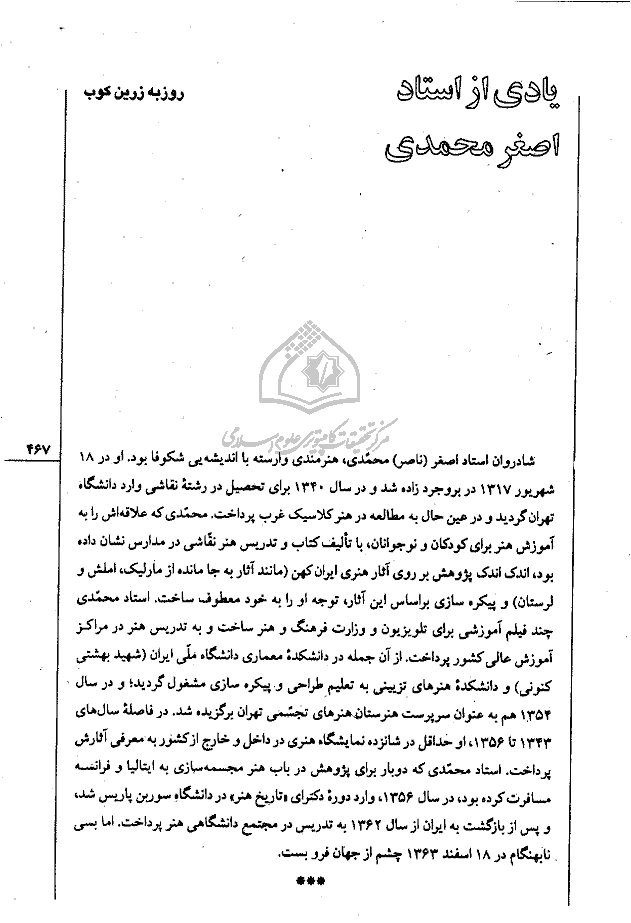 یادی از استاد
اصغر محمدی
روزبه زرین کوب
مرکز تحقیقات کامپیوتری علوم اسلامی
۴۶۷
شادروان استاد اصغر (ناصر) محمّدی، هنرمندی وارسته با اندیشه‌یی شکوفا بود. او در ۱۸
شهریور ۱۳۱۷ در بروجرد زاده شد و در سال ۱۳۴۰ برای تحصیل در رشتهٔ نقاشی وارد دانشگاه
تهران گردید و در عین حال به مطالعه در هنر کلاسیک غرب پرداخت. محمّدی که علاقه‌اش را به
آموزش هنر برای کودکان و نوجوانان، با تألیف کتاب و تدریس هنر نقّاشی در مدارس نشان داده
بود، اندک اندک پژوهش بر روی آثار هنری ایران کهن (مانند آثار به جا مانده از مارلیک، املش و
لرستان) و پیکره سازی براساس این آثار، توجه او را به خود معطوف ساخت. استاد محمّدی
چند فیلم آموزشی برای تلویزیون و وزارت فرهنگ و هنر ساخت و به تدریس هنر در مراکز
آموزش عالی کشور پرداخت. از آن جمله در دانشکدهٔ معماری دانشگاه ملّی ایران (شهید بهشتی
کنونی) و دانشکدهٔ هنرهای تزیینی به تعلیم طراحی و پیکره سازی مشغول گردید؛ و در سال
۱۳۵۴ هم به عنوان سرپرست هنرستان هنرهای تجسّمی تهران برگزیده شد. در فاصلهٔ سال‌های
۱۳۴۳ تا ۱۳۵۶، او حداقل در شانزده نمایشگاه هنری در داخل و خارج از کشور به معرفی آثارش
پرداخت. استاد محمّدی که دوبار برای پژوهش در باب هنر مجسمه‌سازی به ایتالیا و فرانسه
مسافرت کرده بود، در سال ۱۳۵۶، وارد دورهٔ دکترای «تاریخ هنر» در دانشگاه سوربن پاریس شد،
و پس از بازگشت به ایران از سال ۱۳۶۲ به تدریس در مجتمع دانشگاهی هنر پرداخت. اما بسی
نابهنگام در ۱۸ اسفند ۱۳۶۳ چشم از جهان فرو بست.
***